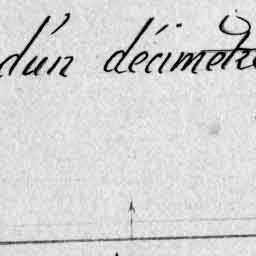 d'un décimetre